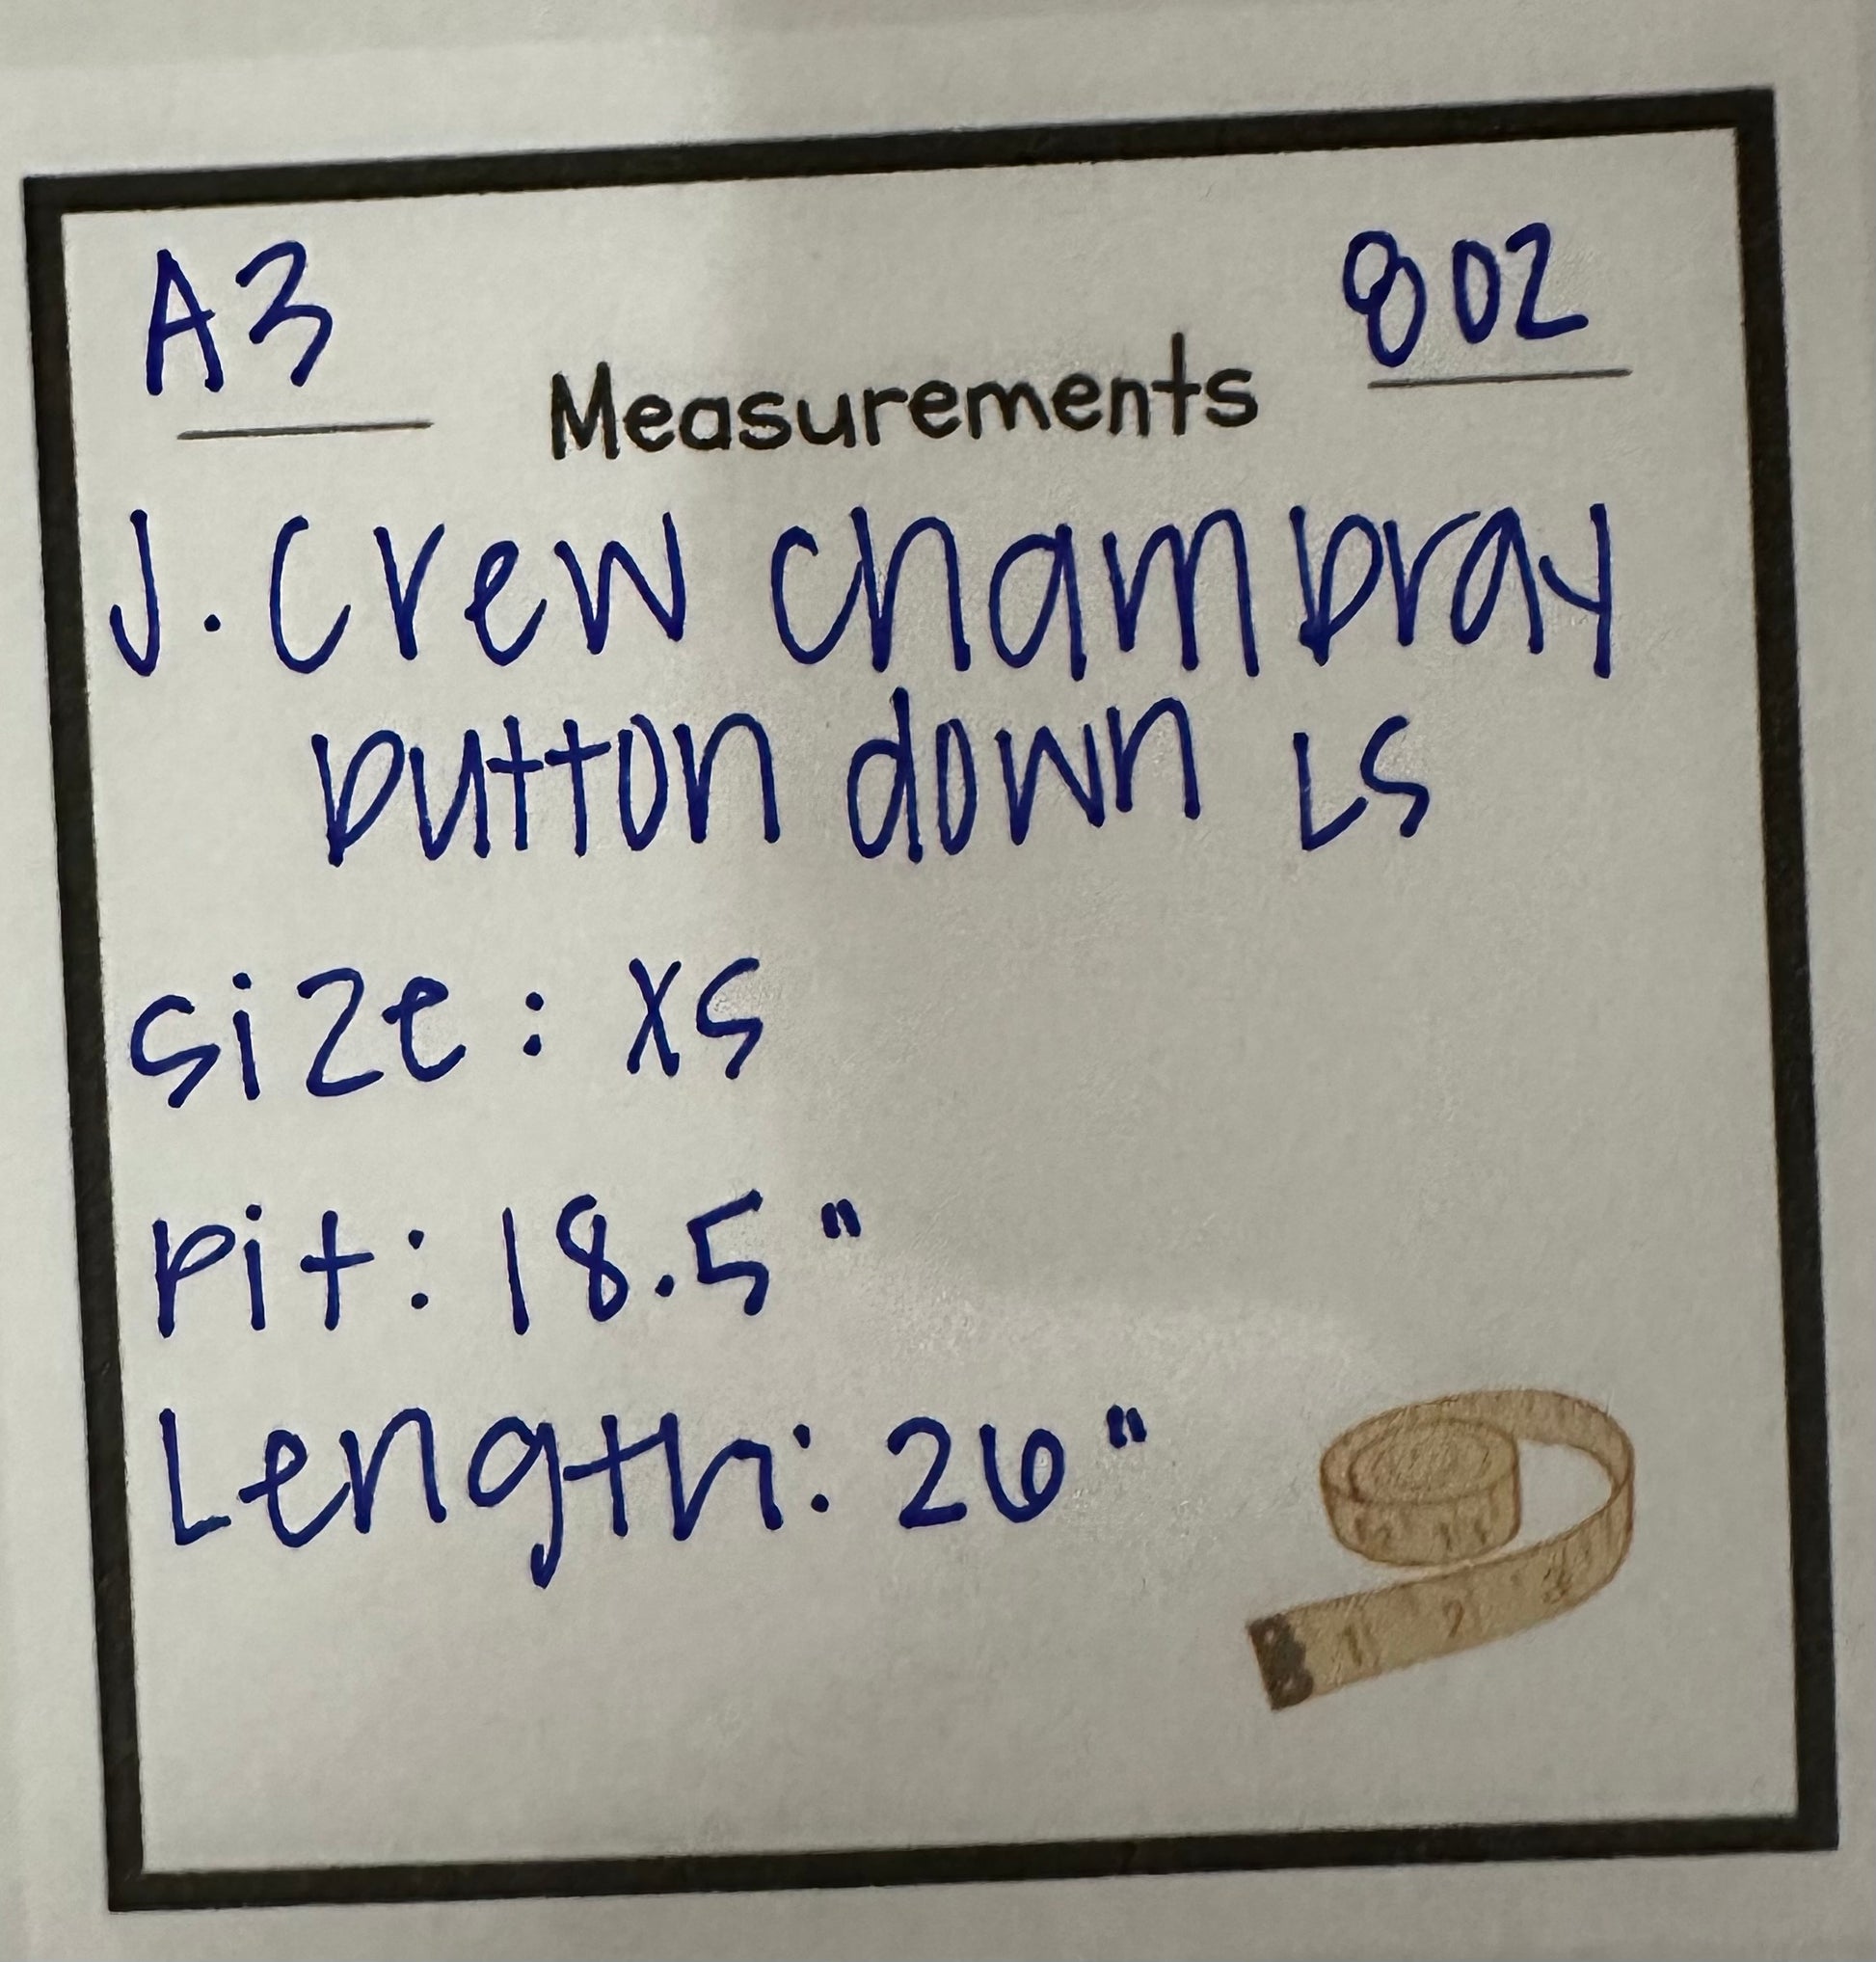 A3
802
Measurements
J. Crew chambray
button down LS
size: XS
pit: 18.5"
Length: 26"